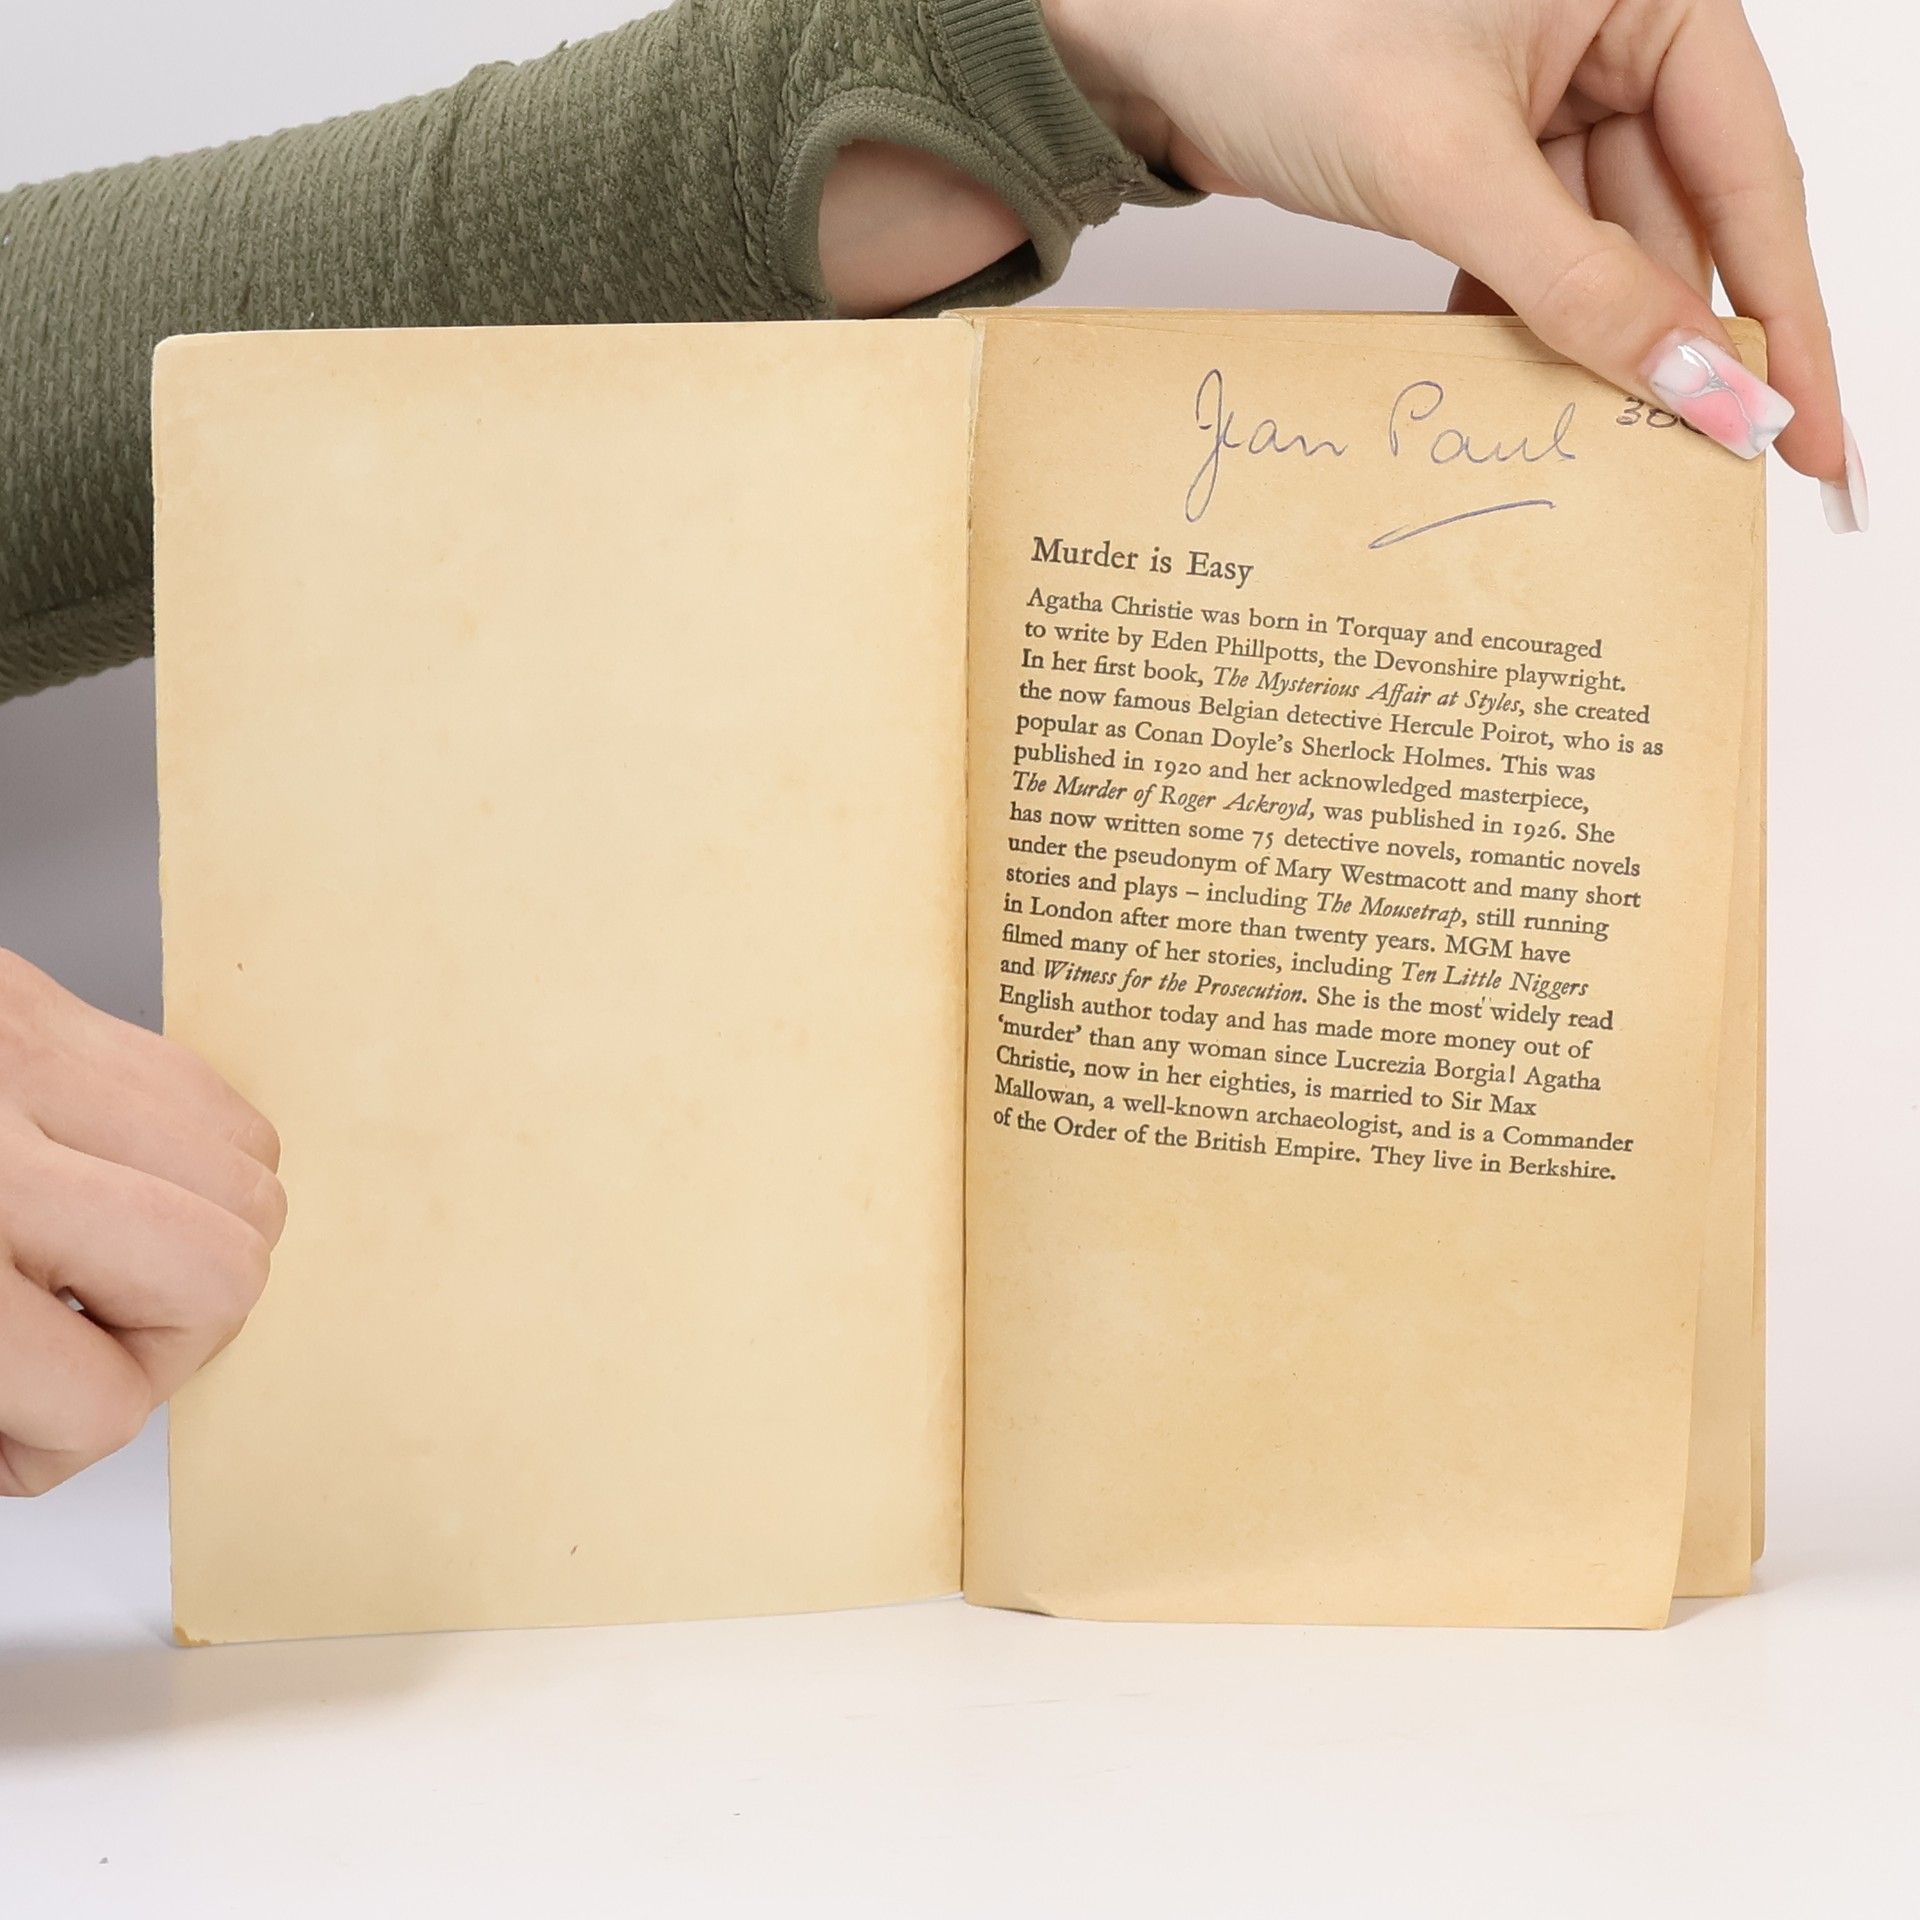 Jean Paul
Murder is Easy
Agatha Christie was born in Torquay and encouraged
to write by Eden Phillpotts, the Devonshire playwright.
In her first book, The Mysterious Affair at Styles, she created
the now famous Belgian detective Hercule Poirot, who is as
popular as Conan Doyle's Sherlock Holmes. This was
published in 1920 and her acknowledged masterpiece,
The Murder of Roger Ackroyd, was published in 1926. She
has now written some 75 detective novels, romantic novels
under the pseudonym of Mary Westmacott and many short
stories and plays – including The Mousetrap, still running
in London after more than twenty years. MGM have
filmed many of her stories, including Ten Little Niggers
and Witness for the Prosecution. She is the most widely read
English author today and has made more money out of
'murder' than any woman since Lucrezia Borgia! Agatha
Christie, now in her eighties, is married to Sir Max
Mallowan, a well-known archaeologist, and is a Commander
of the Order of the British Empire. They live in Berkshire.